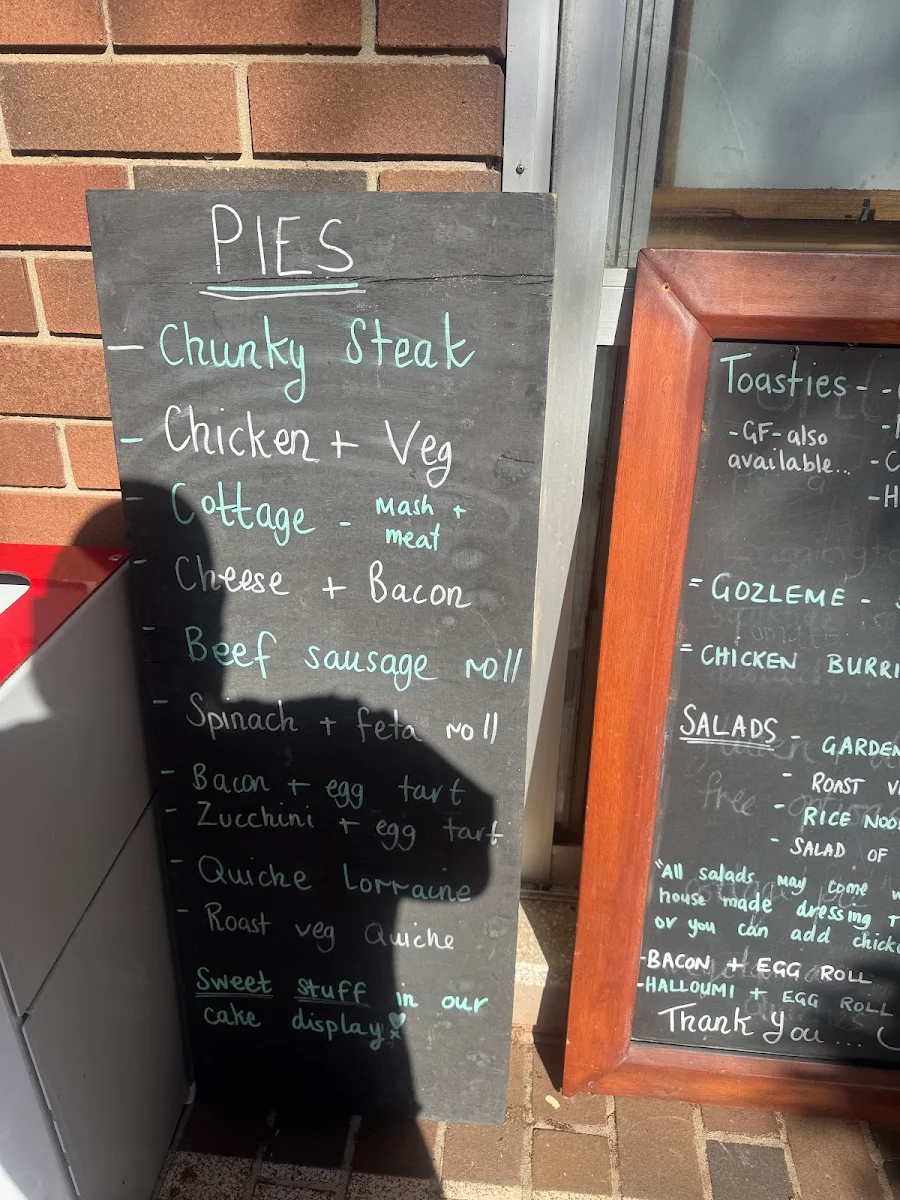 PIES
- Chunky Steak
- Chicken + Veg
- Cottage - Mash +
meat
- Cheese + Bacon
- Beef sausage roll
- Spinach + feta roll
- Bacon + egg tart
- Zucchini + egg tart
- Quiche Lorraine
- Roast veg Quiche
Sweet stuff in our
cake display!
Toasties -
-GF-also
available...
= GOZLEME -
= CHICKEN BURRI
SALADS - GARDEN
- ROAST V
- RICE NOO
- SALAD OF
"All salads may come w
house made dressing T
or you can add chick
-BACON + EGG ROLL
-HALLOUMI + EGG ROLL
Thank You ...